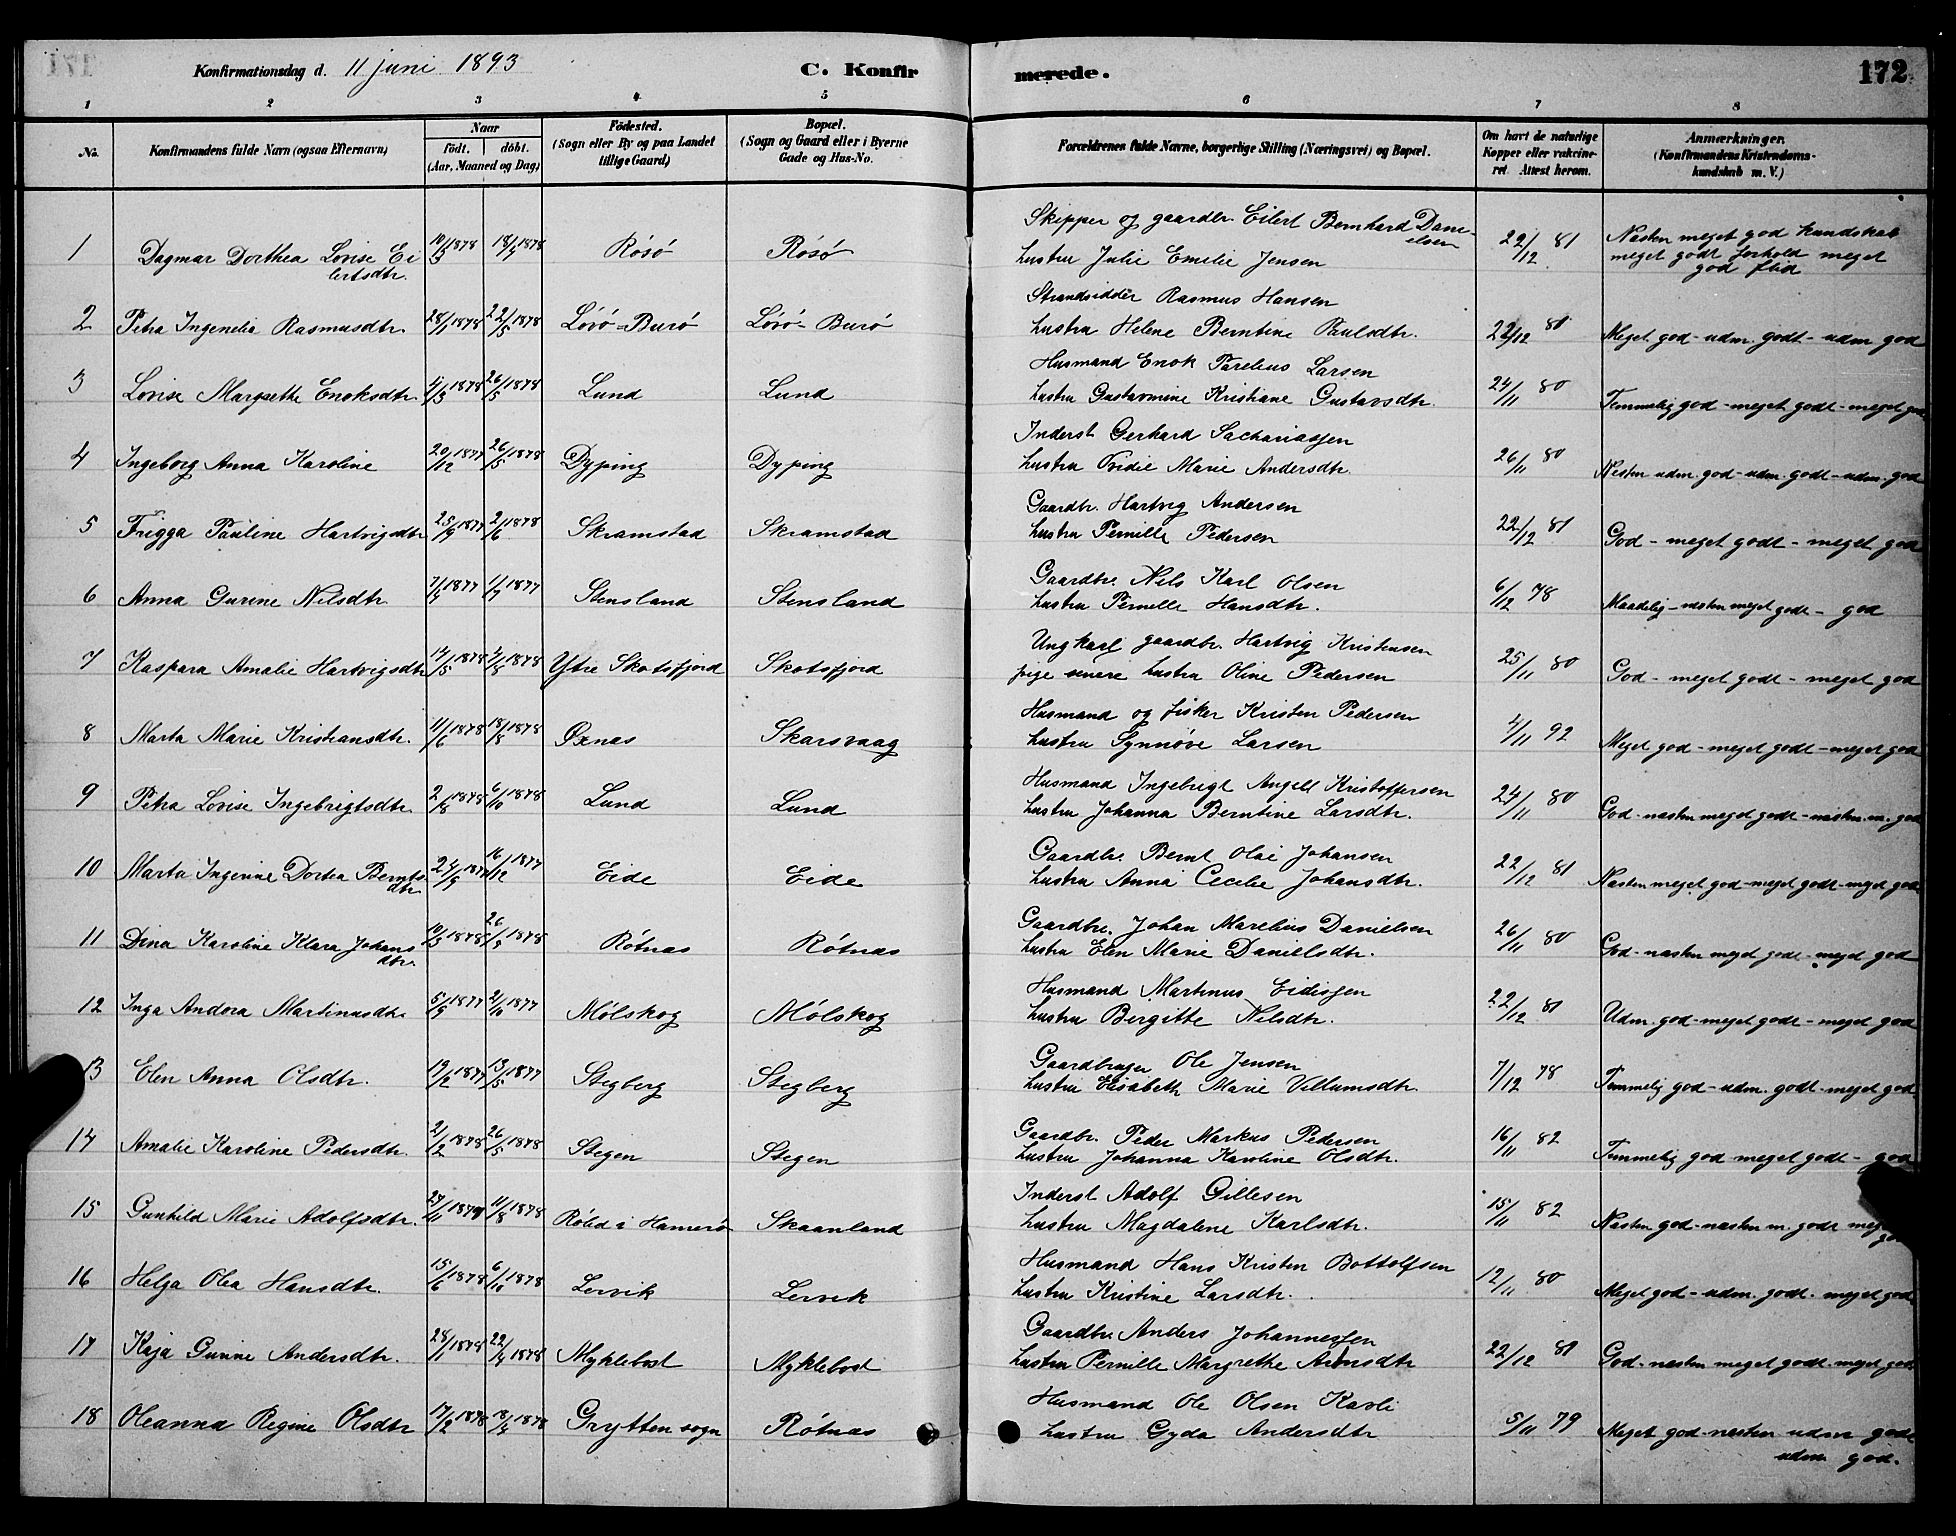 171
Konfirmationsdag d. 11 juni 1893 C. Konfirmerede. 172
1 2 3 4 5 6 7 8
No. Konfirmandens fulde Navn (ogsaa Efternavn) Naar født. døbt. (Aar, Maaned og Dag) Fødested. (Sogn eller By og paa Landet tillige Gaard) Bopæl. (Sogn og Gaard eller i Byerne Gade og Hus-No. Forældrenes fulde Navne, borgerlige Stilling (Næringsvei) og Bopæl. Om havt de naturlige Kopper eller vakcineret. Attest herom. Anmærkninger. (Konfirmandens Kristendomskundskab m. V.)
1 Dagmar Dorthea Lovise Eilertsdtr. 10/3 1878 18/4 1878 Røsø Røsø Skipper og gaardbr. Eilert Bernhard Danielsen
Hustru Julie Emilie Jensen 22/12 81 Næsten meget god kundskab meget godt forhold meget god flid
2 Petra Ingenelia Rasmusdtr. 28/1 1878 22/5 1878 Lørø-Burø Lørø-Burø Strandsidder Rasmus Hansen
Hustru Helene Berntine Paulsdtr. 22/12 81 Meget god - udm. godt - udm god
3 Lovise Margrethe Enoksdtr. 4/3 1878 26/5 1878 Lund Lund Husmand Enok Parelius Larsen
Hustru Gustavmine Kristiane Gustavsdtr. 24/11 80 Temmelig god - meget godt - meget god
4 Ingeborg Anna Karoline 20/12 1877 26/5 1878 Dyping Dyping Inderst Gerhard Sachariassen
Hustru Ovidie Marie Andersdtr. 26/11 80 Næsten udm. god - udm. godt - udm. god
5 Frigga Pauline Hartvigsdtr 25/9 1877 2/6 1878 Skramstad Skramstad Gaardbr. Hartvig Andersen
Hustru Pernille Pedersen 22/12 81 God - meget godt - meget god
6 Anna Gurine Nilsdtr. 7/5 1877 1/7 1877 Stensland Stensland Gaardbr. Nils Karl Olsen
Hustru Pernille Hansdtr. 6/12 78 Maadelig - næsten meget godt - god
7 Kaspara Amalie Hartvigsdtr 14/5 1878 4/8 1878 Ytre Skotsfjord Skotsfjord Ungkarl gaardbr. Hartvig Kristensen
pige senere hustru Oline Pedersen 25/11 80 God - meget godt - meget god
8 Marta Marie Kristiansdtr. 11/6 1878 18/8 1878 Øxnas Skarsvaag Husmand og fisker Kristen Pedersen
Hustru Synnøve Larsen 4/11 92 Meget god - meget godt - meget god
9 Petra Lovise Ingebrigtsdtr. 2/8 1878 6/10 1878 Lund Lund Husmand Ingebrigt Angell Kristoffersen
Hustru Johanna Berntine Larsdtr. 24/11 80 God - næsten meget godt - næsten m. god
10 Marta Ingerine Dortea Berntsdtr. 24/9 1877 16/12 1877 Eide Eide Gaardbr. Bernt Olai Johansen
Hustru Anna Cecilie Johansdtr. 22/12 81 Næsten meget god - meget godt - meget god
11 Dina Karoline Klara Johansdtr. 10/3 1878 26/3 1878 Røtnas Røtnas Gaardbr. Johan Marelius Danielsen
Hustru Elen Marie Danielsdtr. 26/11 80 God - næsten meget godt - meget god
12 Inga Andora Martinusdtr. 5/9 1877 21/10 1877 Mølskog Mølskog Husmand Martinus Eidissen
Hustru Bergitte Nilsdtr. 22/12 81 Udm. god - meget godt - meget god
13 Elen Anna Olsdtr. 19/2 1877 13/5 1877 Stegberg Stegberg Gaardbruger Ole Jensen
Hustru Elisabeth Marie Villumsdtr 7/12 78 Temmelig god - udm. godt - meget god
14 Amalie Karoline Pedersdtr. 21/2 1878 26/5 1878 Stegen Stegen Gaardbr. Peder Markus Pedersen
Hustru Johanna Karoline Olsdtr. 16/11 82 Temmelig god meget godt - god
15 Gunhild Marie Adolfsdtr. 27/11 1877 11/8 1878 Rølid i Hamerø Skaanland Inderst Adolf Gillesen
Hustru Magdalene Karlsdtr. 15/11 82 Næsten god - næsten m. godt
16 Helga Olea Hansdtr. 15/6 1878 6/10 1878 Lervik Lervik Husmand Hans Kristen Bottolfsen
Hustru Kristine Larsdtr. 12/11 80 Meget god - udm. godt - meget god
17 Kaja Gurine Andersdtr. 28/1 1878 22/4 1878 Myklebost Myklebost Gaardbr. Anders Johannessen
Hustru Pernille Margrethe Arnsdtr 22/12 81 God - næsten meget godt - meget god
18 Oleanna Regine Olsdtr 17/2 1878 18/4 1878 Grytten sogn Røtnas Husmand Ole Olsen Kavli
Hustru Gyda Andersdtr 5/11 79 Meget god - næsten udm godt udm god.